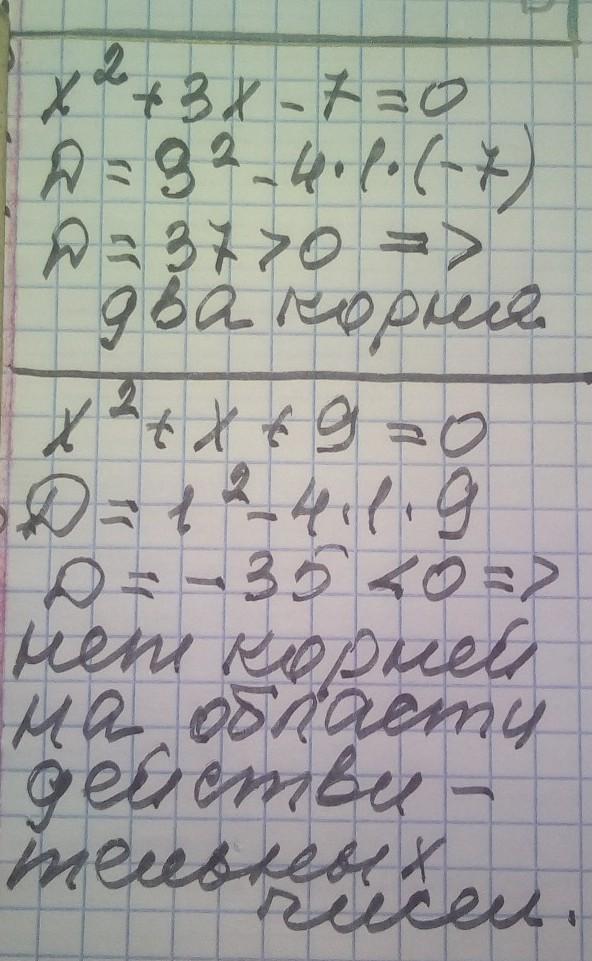 x² + 3x - 7 = 0
D = 3² - 4·1·(-7)
D = 37 > 0 =>
два корня.
x² + x + 9 = 0
D = 1² - 4·1·9
D = -35 < 0 =>
нет корней
на области
действи -
тельных
чисел.